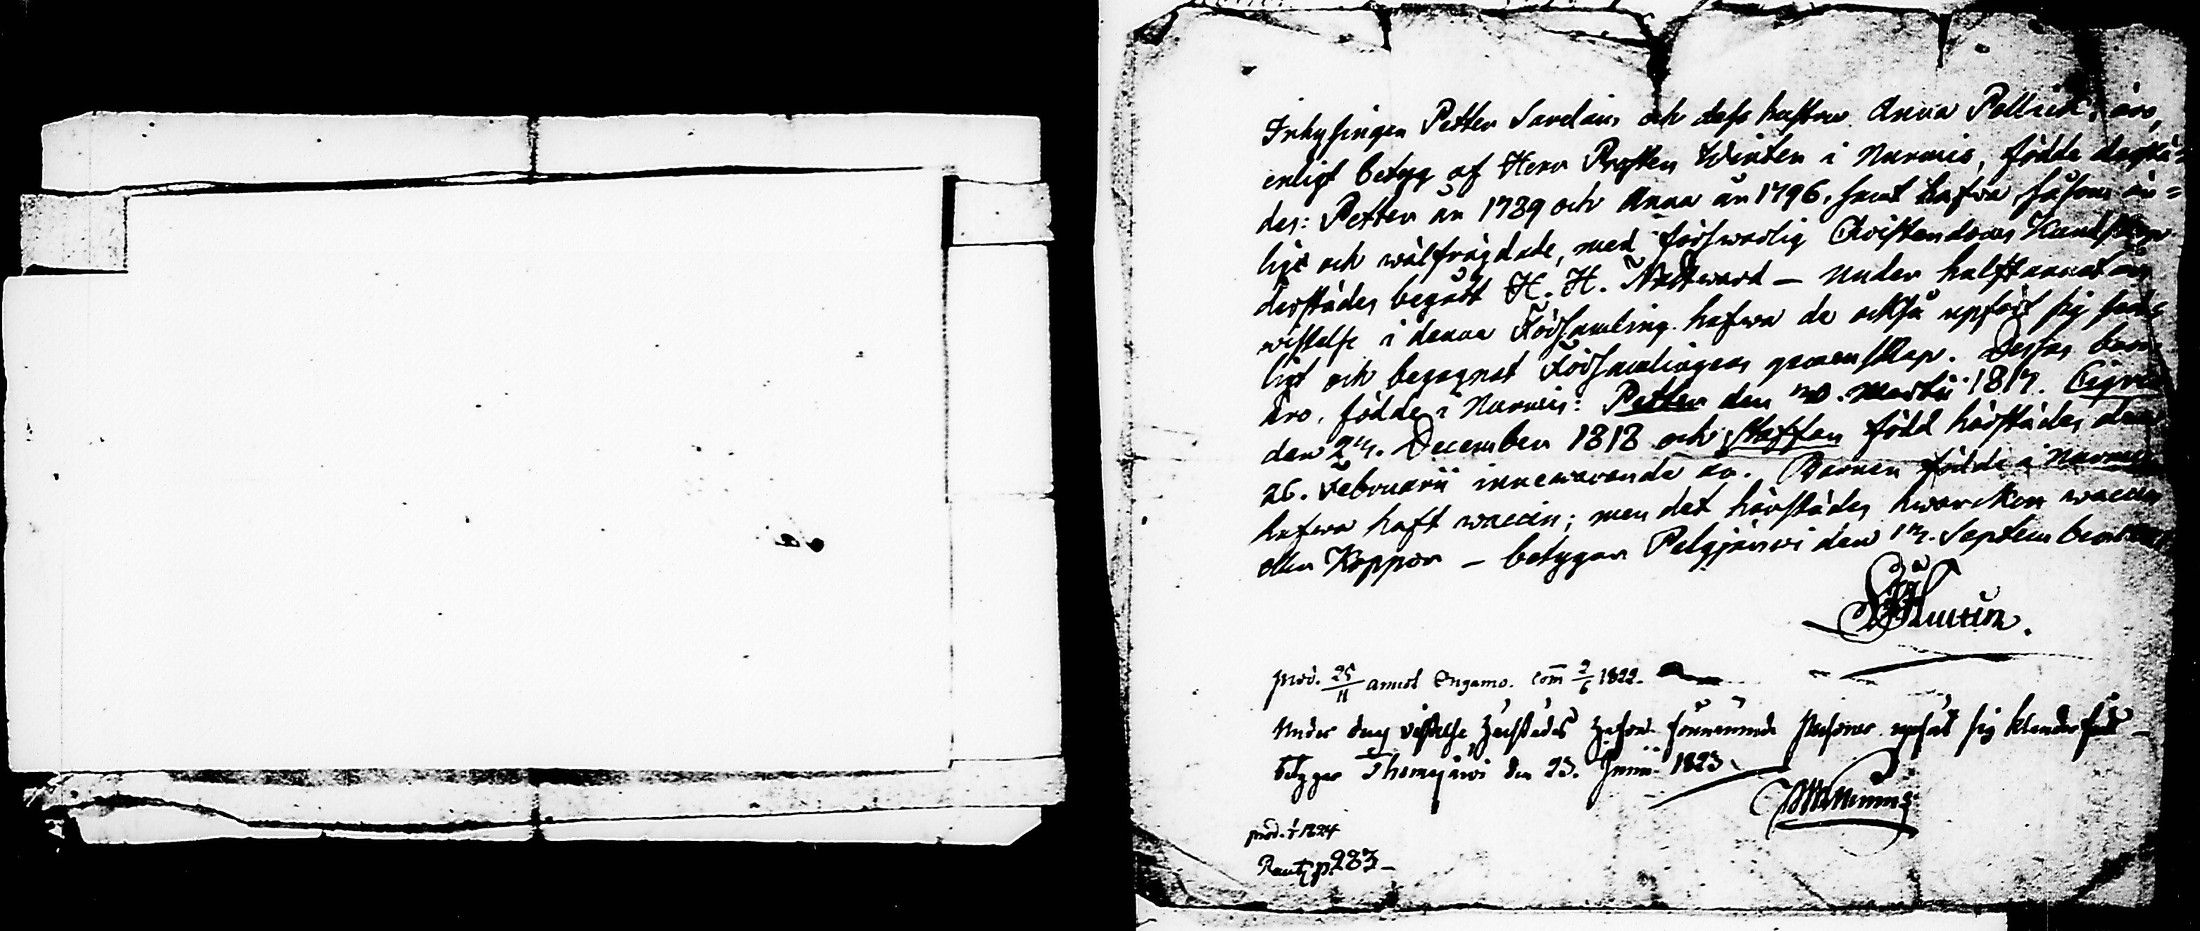 Inhysingen Petter Sardain och dess hustru Anna Pellick: äro,
enligt betyg af Herr Prosten Winter i Nurmis, födde derstä-
des: Petter år 1789 och Anna år 1796, samt hafva, såsom är=
ligt och wälfrägdade, med försvarlig Christendoms Kundskap
derstädes begått H. H. Nattward — Under halftannat års
wistelse i denna Församling hafwa de också upfört sig sed-
ligt och begagnat Församlingens gemenskap. Desses barn
äro, födde i Nurmis: Petter den Martii 1817.
den 27. December 1818 och Staffan född härstädes den
26. Februarii innewarande år. Barnen födde i Nurmis
hafwa haft waccin; men det härstädes hwarcken waccin
eller Koppor — betygar Pelgjärwi den 17. September
prod. 25/11 Com 2/6 1822.
Under deras vistelse härstädes hafva förenämnde Personer upfört sig klanderfritt
betygar Thomajärvi den 23. Junii 1823.
prod. 1824
p. 283 —